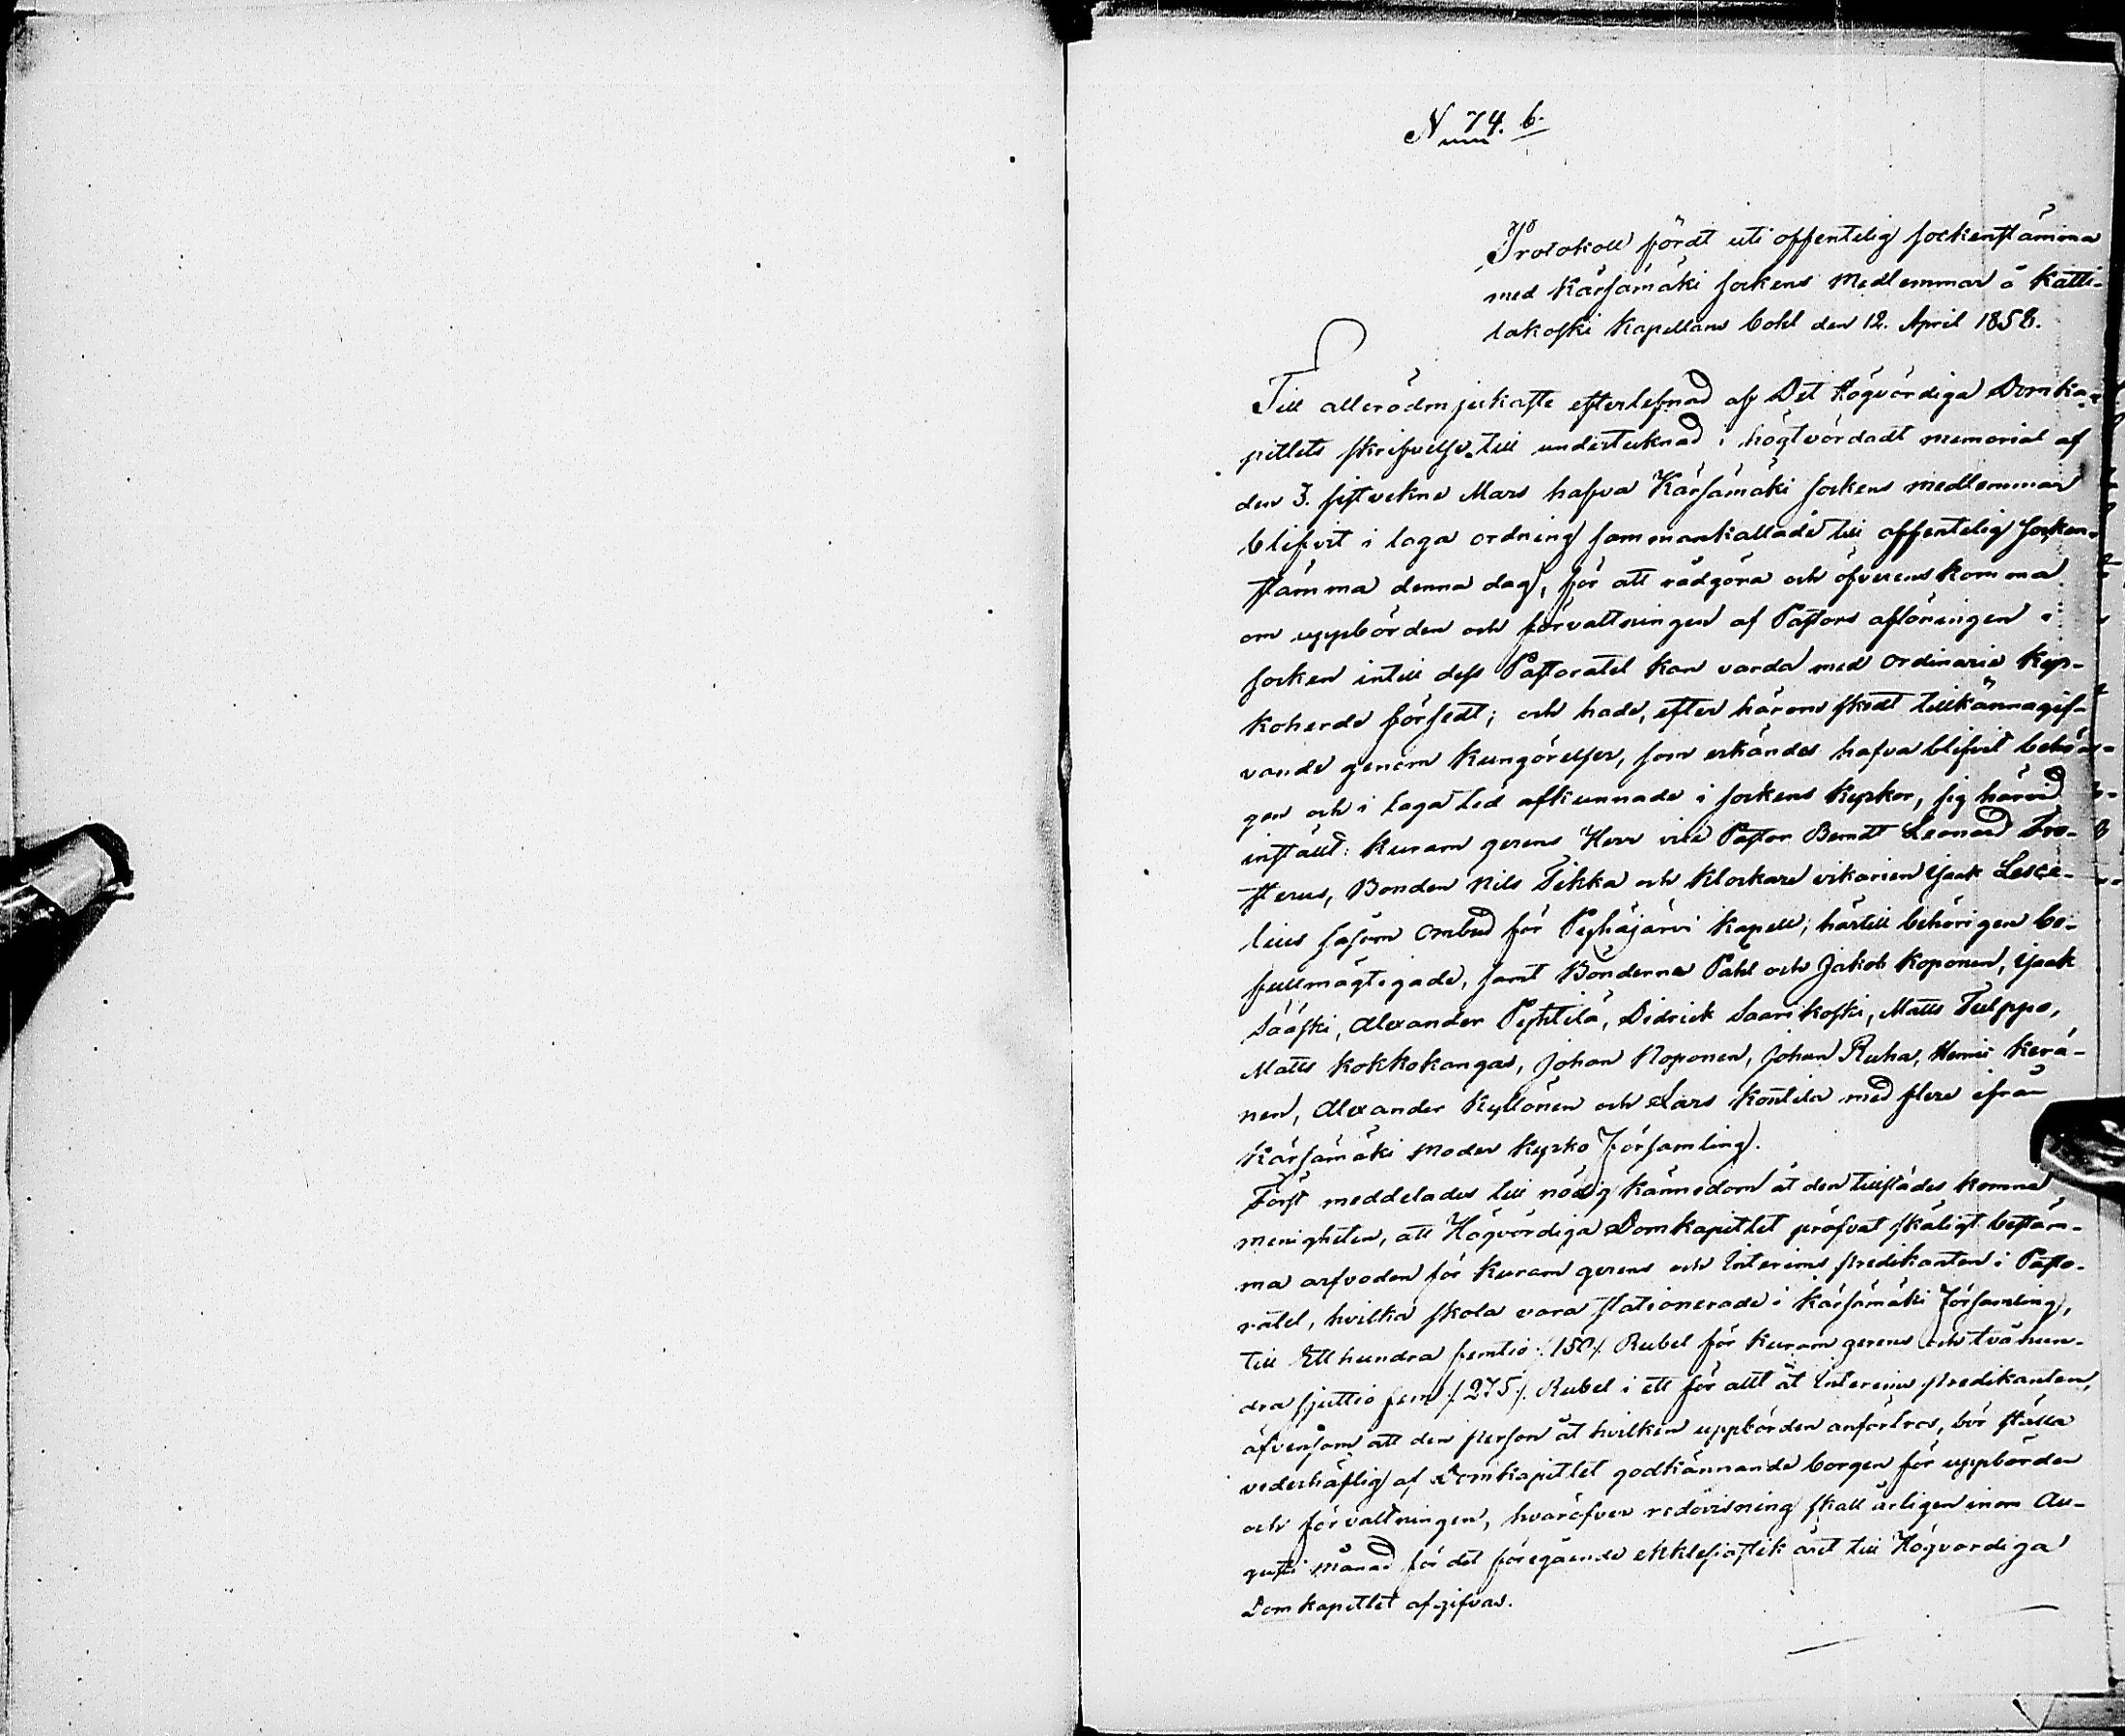 Num 74. b.
Protokoll fördt uti offentelig sockenstämma
med Kärsämäki sockens Medlemmar å Katti-
lakoski Kapellans bohl den 12. April 1858.
Till allerödmjukaste efterlefnad af Det Högvördiga Domka-
pitlets skrifvelse till undertecknad i högtvördadt memorial af
den 3. sistvekne Mars hafva Kärsämäki sockens medlemmar
blifvit i laga ordning sammankallade till offentelig socken-
stämma denna dag, för att rådgöra och öfverenskomma
om uppbörden och förvaltningen af Pastors aflöningen i
socken intill dess Pastoratet kan varda med ordinarie Kyr-
koherde försedt; och hade, efter härom skedt tillkännagif-
vande genom kungörelser, som erkändes hafva blifvit behöri-
gen och i laga tid afkunnade i sockens kyrkor, sig härvid
inställt: Kuram gerens Herr vice Pastor Berndt Leonard Fro-
sterus, Bonden Nils Tikka och Klockare vikarien Isak Lesce-
lius såsom ombud för Pyhäjärvi Kapell, härtill behörigen be-
fullmägtigade, samt Bönderne Påhl och Jakob Koponen, Isak
Sääski, Alexander Pyhtilä, Didrick Saarikoski, Matts Tulppo,
Matts Kokkokangas, Johan Roponen, Johan Ruha, Henric Kerä-
nen, Alexander Kyllönen och Lars Kontila med flere ifrån
Kärsämäki Moder Kyrko Församling.
Först meddelades till nödig kännedom åt den tillstädes komne
menigheten, att Högvördiga Domkapitlet pröfvat skäligt bestäm-
ma arfvoden för Kuram gerens och Interims predikanten i Pasto-
ratet, hvilka skola vara stationerade i Kärsämäki Församling,
till Ett hundra femtio /:150:/ Rubel för Kuram gerens och tvåhun-
dra sjuttio fem /:275:/ Rubel i ett för allt åt Interims predikanten,
äfvensom att den person åt hvilken uppbörden anförtros, bör ställa
vederhäftig af Domkapitlet godkännande borgen för uppbörden
och förvaltningen, hvaröfver redovisning skall årligen inom Au-
gusti månad för det föregående ekklesiastik året till Högvördiga
Domkapitlet afgifvas.